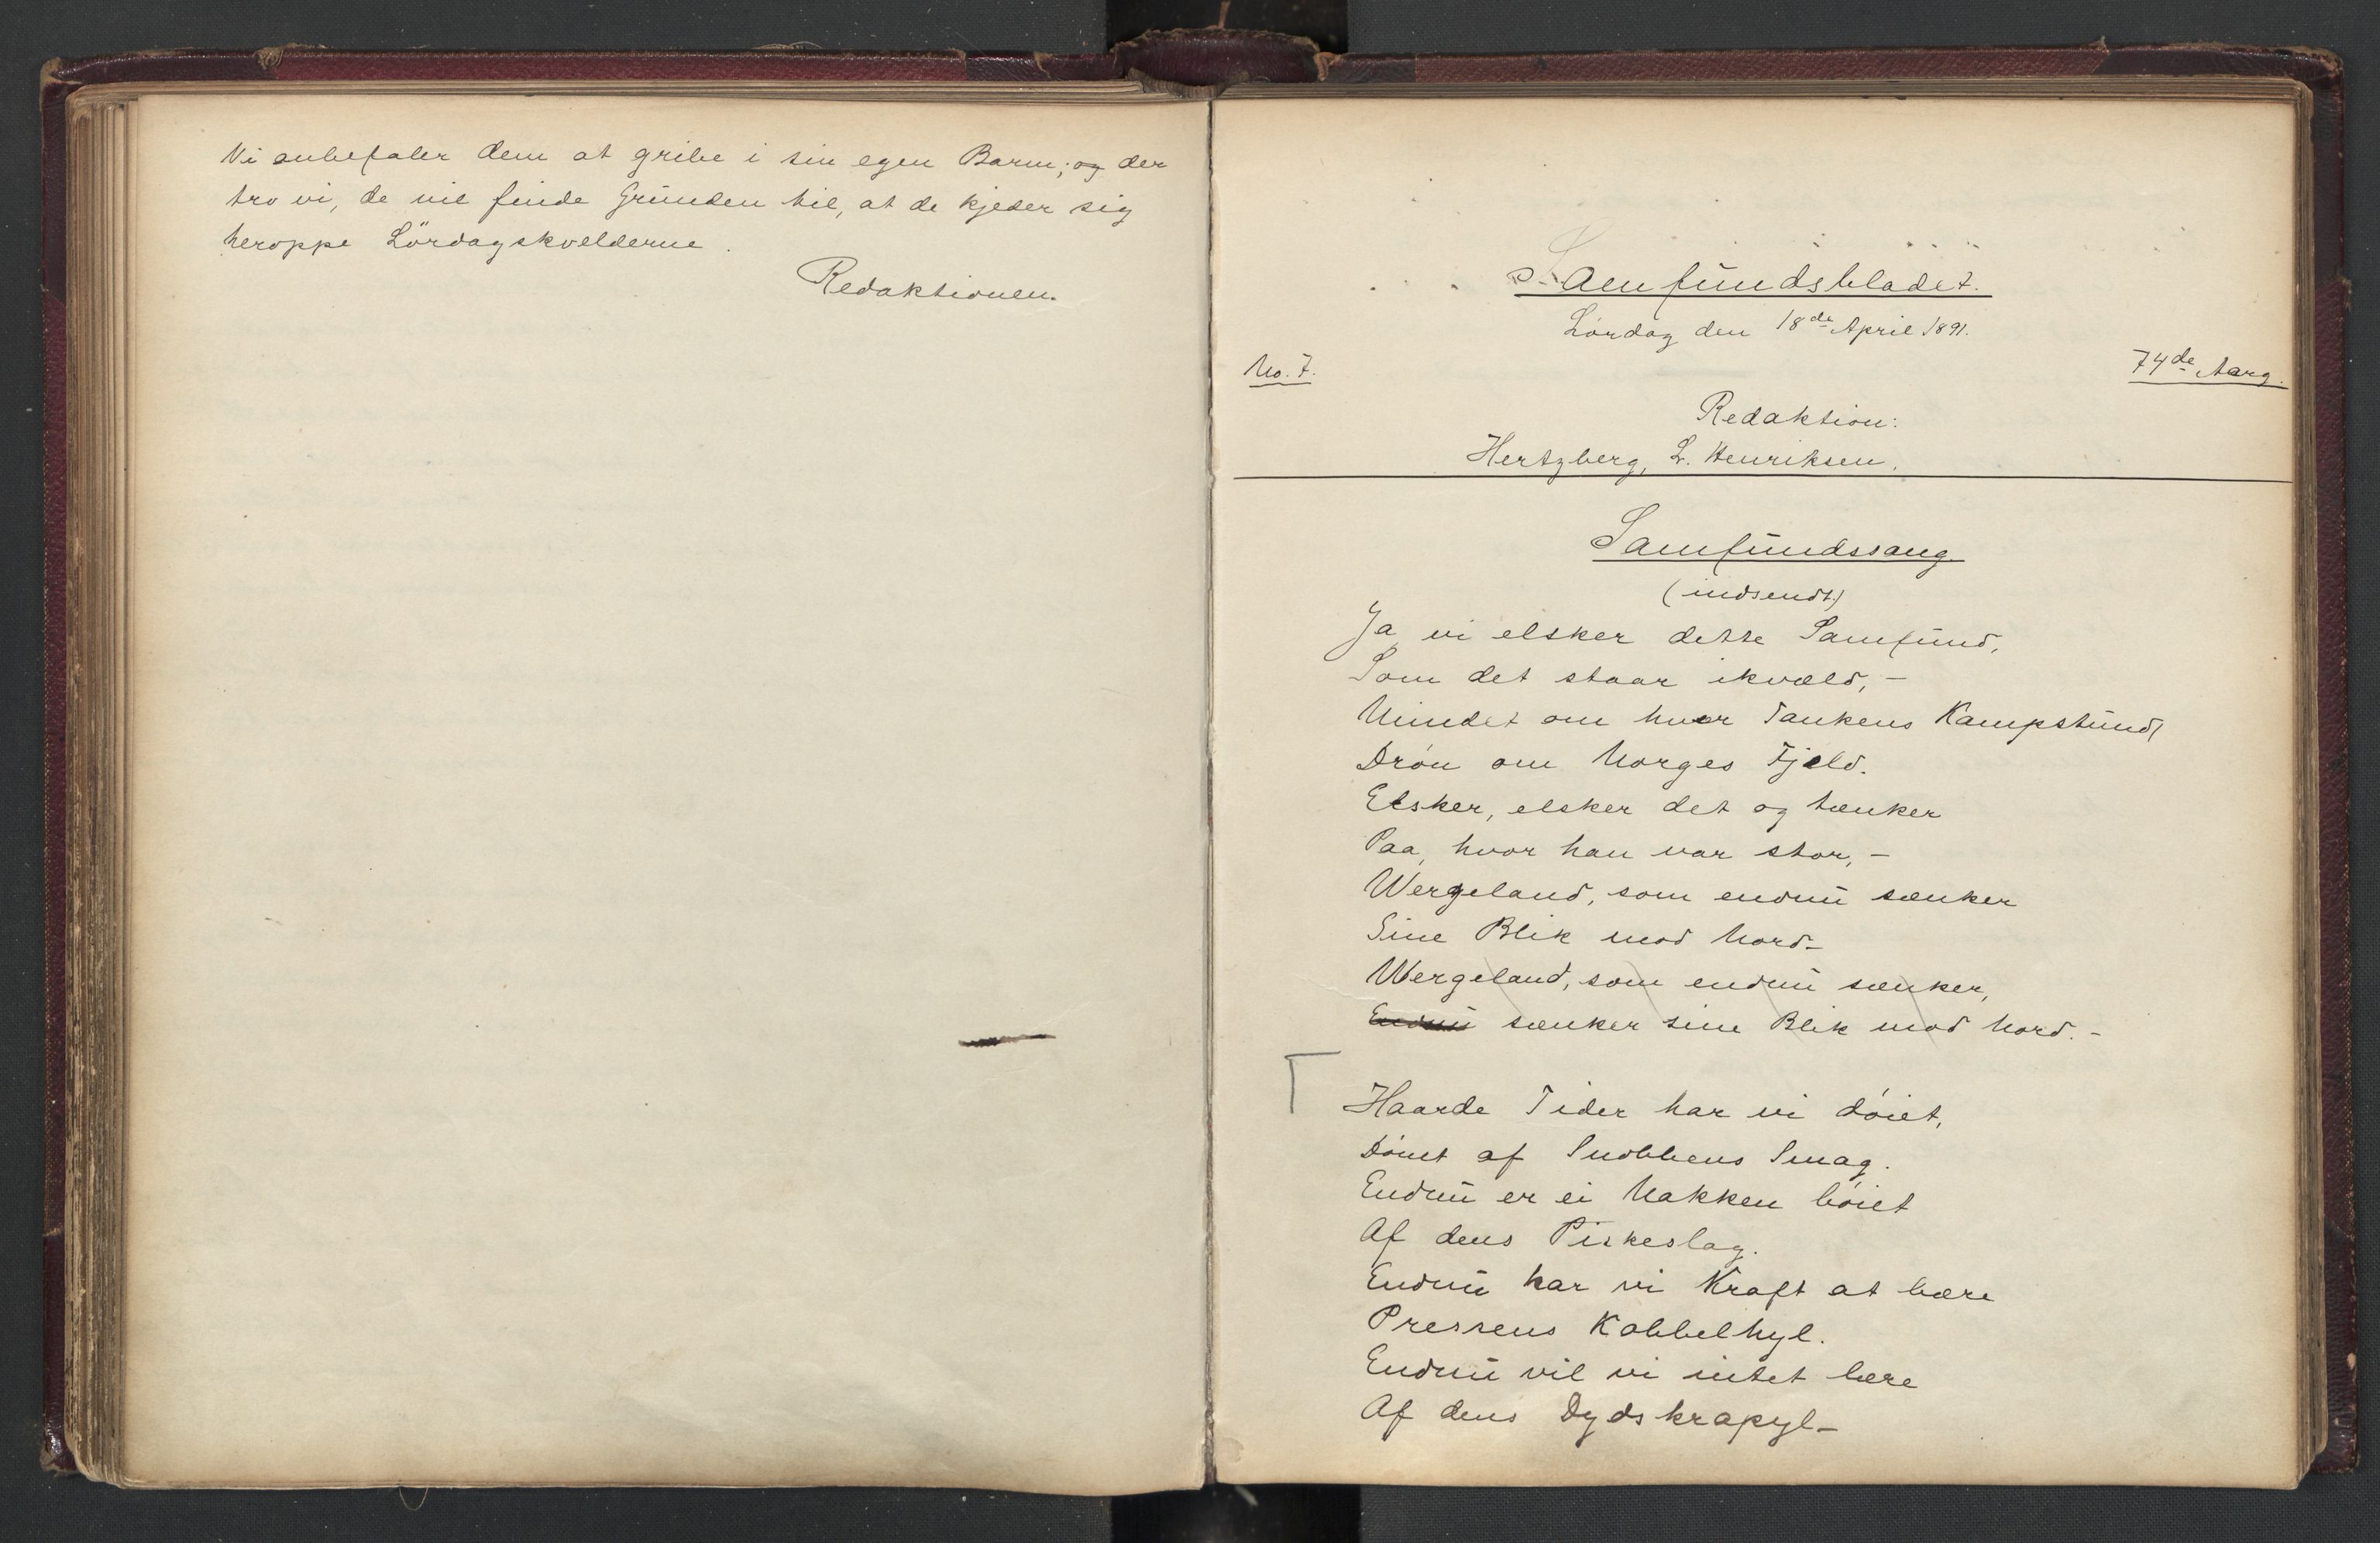 Vi anbefaler dem at gribe i sin egen Barm; og der
tro vi, de vil finde Grunden til, at de kjeder sig
heroppe Lördagskvelderne.
Redaktionen.
Samfundsbladet.
Lördag den 18de April 1891.
No. 7.
74de Aarg.
Redaktion:
Hertzberg, L. Henriksen.
Samfundssang
(indsendt)
Ja vi elsker dette Samfund,
Som det staar ikvæld, –
Mindet om hver Tankens Kampstund,
Drön om Norges Fjeld.
Elsker, elsker det og tænker
Paa, hvor han var stor, –
Wergeland, som endnu sænker
Sine Blik mod Nord –
Wergeland, som endnu sænker,
Endnu sænker sine Blik mod Nord. –
Haarde Tider har vi döiet,
Dömt af Snobbens Smag.
Endnu er ei Nakken böiet
Af dens Piskeslag.
Endnu har vi Kraft at bære
Pressens Kobbelhyl.
Endnu vil vi intet lære
Af dens Dydskrapyl –